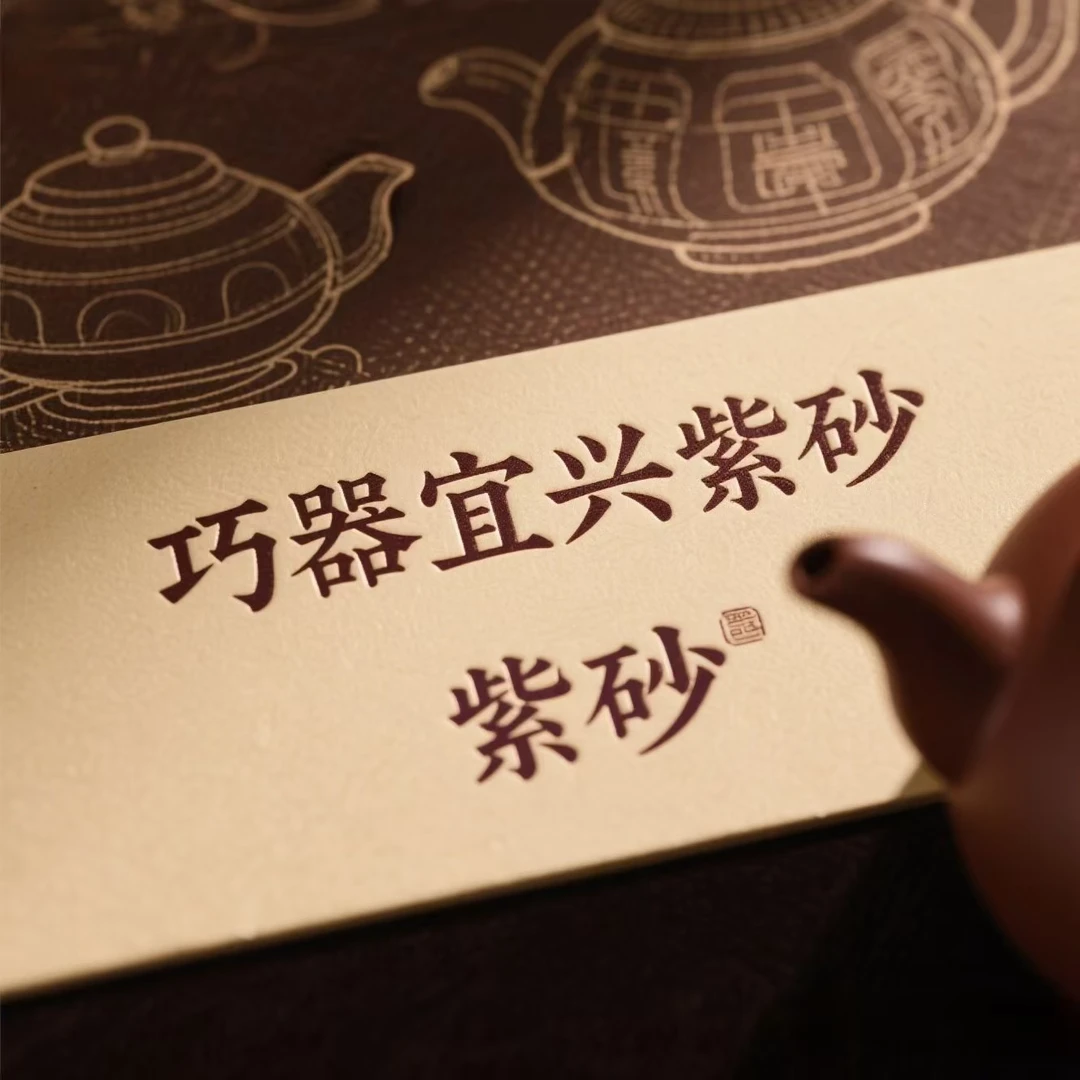 巧器宜兴紫砂
紫砂